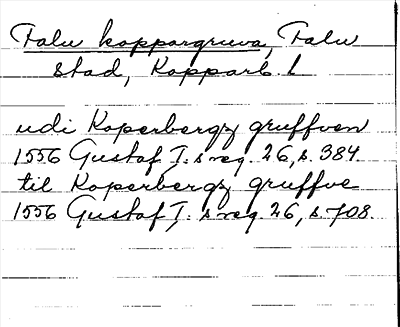 Falu koppargruva, Falu
stad, Kopparb. l
udi Koperbergz gruffven
1556 Gustaf I:s reg. 26, s. 384.
til Koperbergz gruffve
1556 Gustaf I:s reg. 26, s. 708.